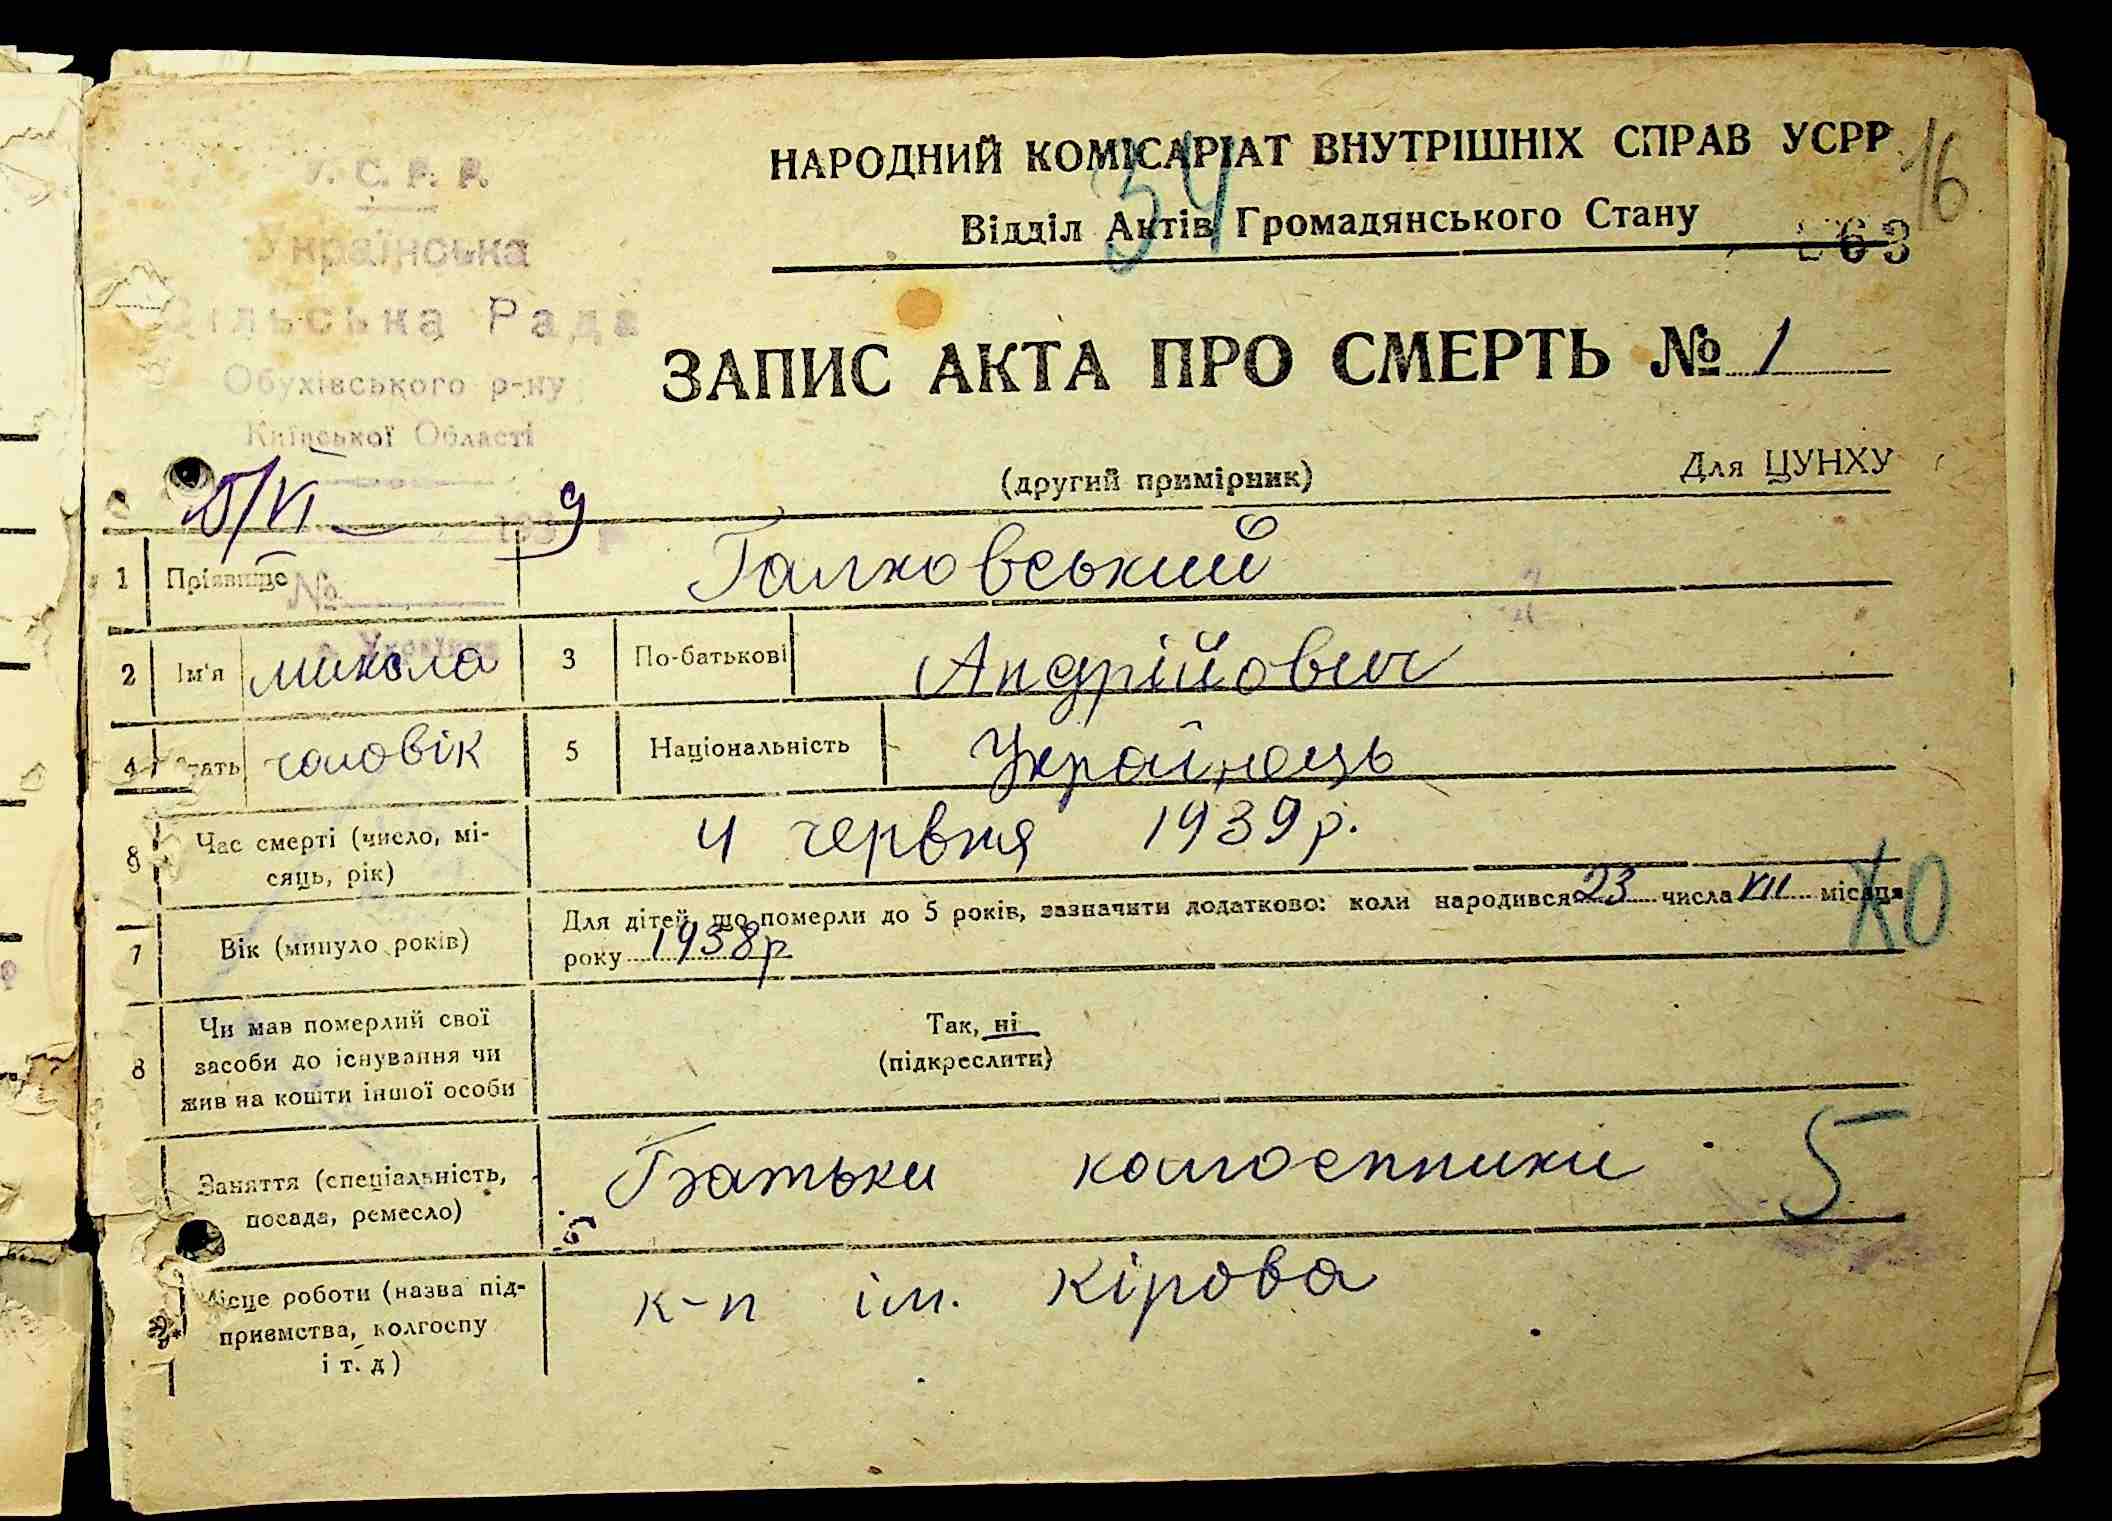 У. С. Р. Р.
Українська
Сільська Рада
Обухівського р-ну
Київської Області
5/VI 1939 р
№
с. Українка
НАРОДНИЙ КОМІСАРІАТ ВНУТРІШНІХ СПРАВ УСРР
16
34
Відділ Актів Громадянського Стану
63
ЗАПИС АКТА ПРО СМЕРТЬ № 1
(другий примірник)
Для ЦУНХУ
1 Прізвище Галковський
2 Ім'я микола 3 По-батькові Андрійович
4 Стать чоловік 5 Національність Українець
6 Час смерті (число, мі-
сяць, рік)
4 червня 1939 р.
7 Вік (минуло років)
Для дітей, що померли до 5 років, зазначити додатково: коли народився 23 числа XII місяця
року 1938 р
ХО
8 Чи мав померлий свої
засоби до існування чи
жив на кошти іншої особи
Так, ні
(підкреслити)
Заняття (спеціальність,
посада, ремесло)
Батьки колгоспники
5
Місце роботи (назва під-
приємства, колгоспу
і т. д)
к-п ім. Кірова